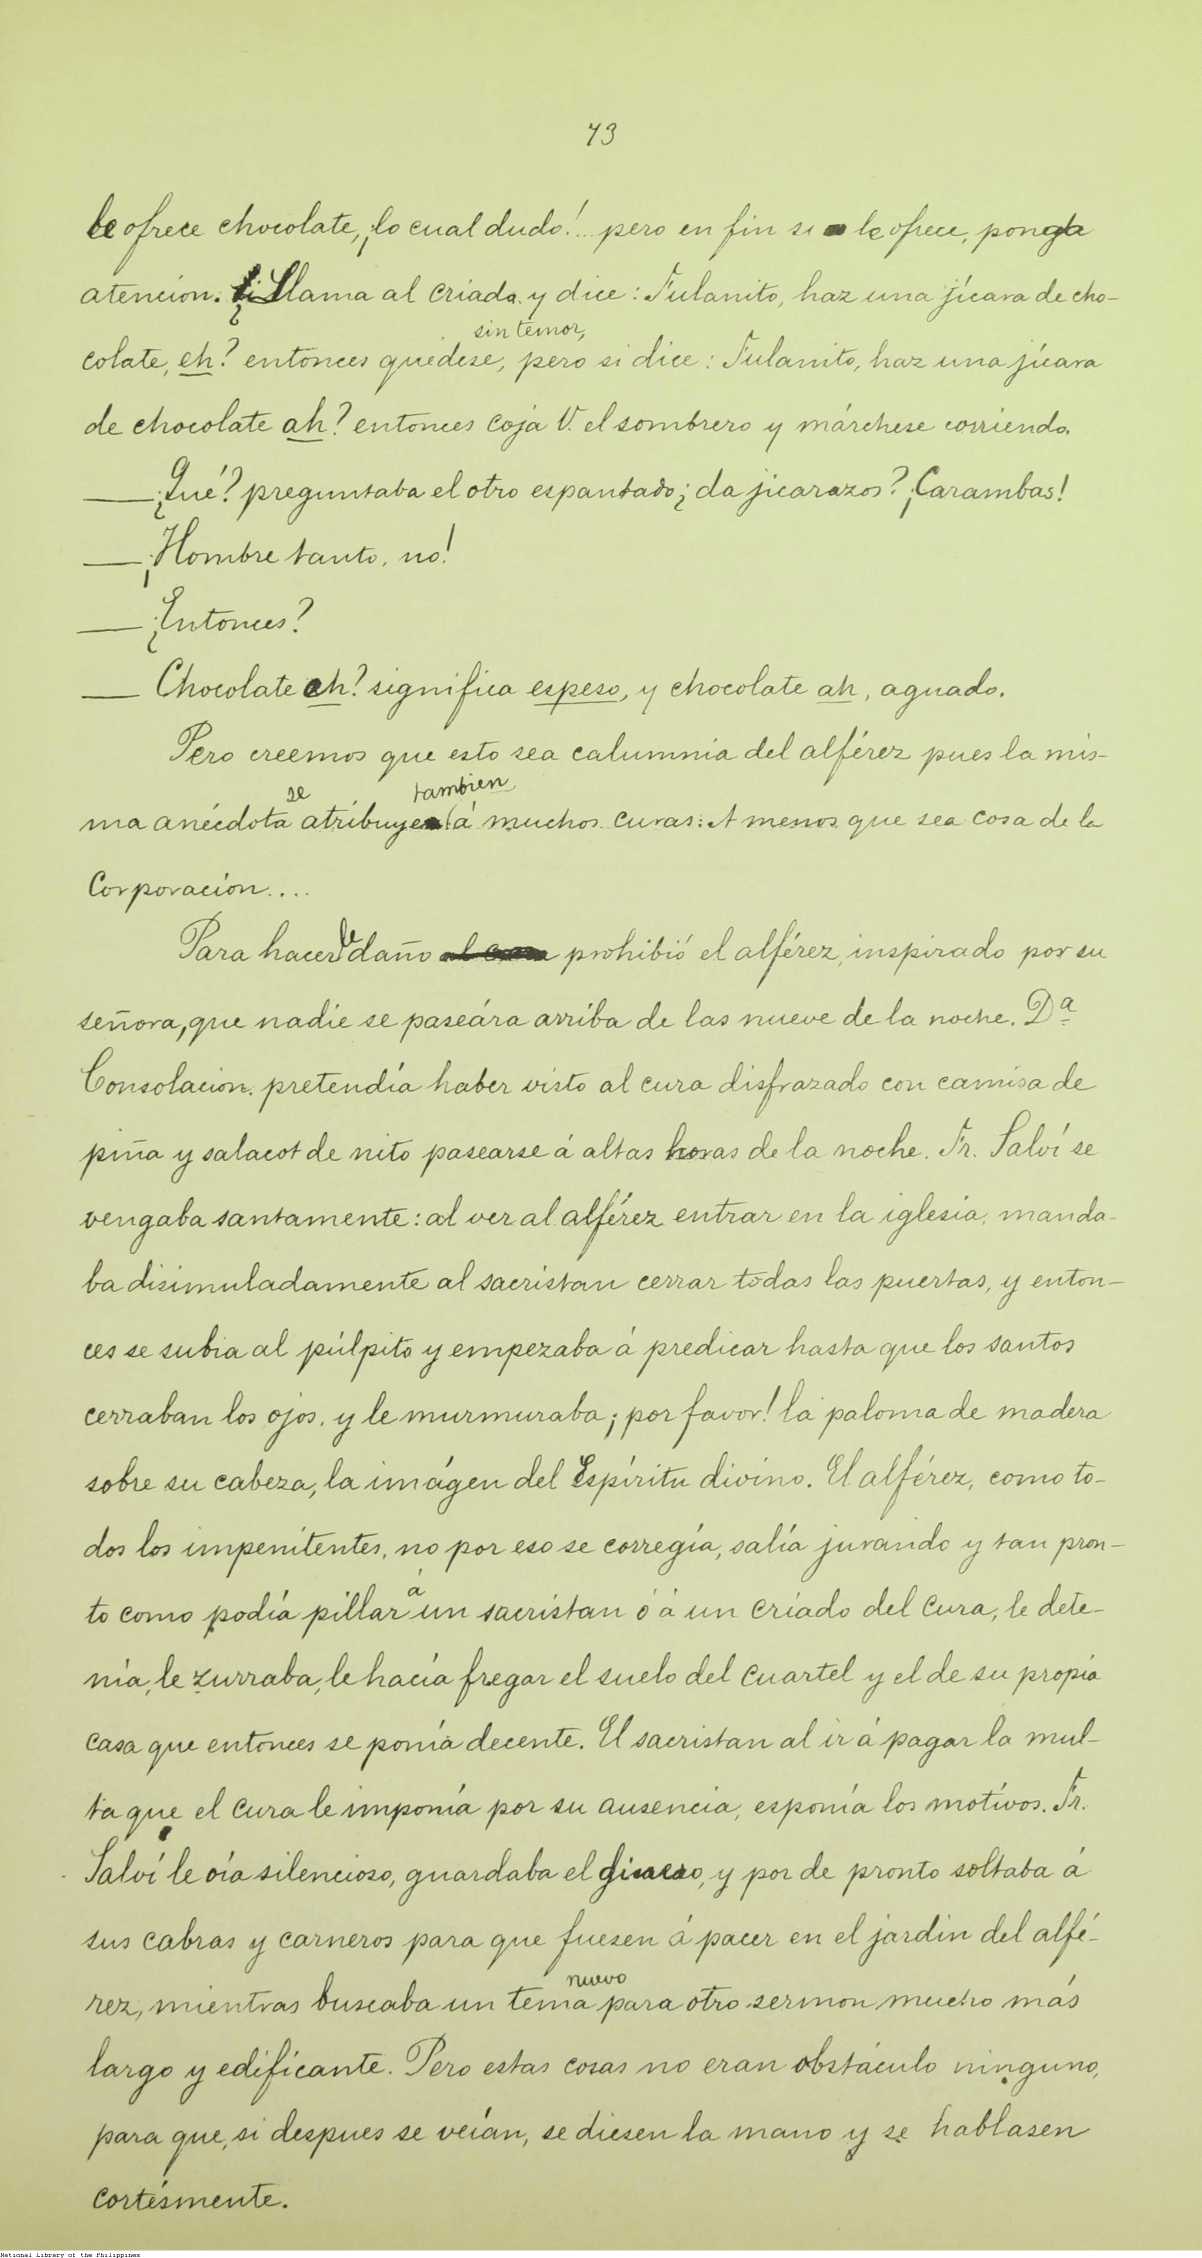 73
le ofrece chocolate, ¡lo cual dudo!... pero en fin si le ofrece, ponga
atencion. Si llama al criado y dice: Fulanito, haz una jícara de cho-
sin temor,
colate, eh? entonces quédese, pero si dice: Fulanito, haz una jícara
de chocolate ah? entonces coja V. el sombrero y márchese corriendo.
— ¿Qué? preguntaba el otro espantado ¿da jicarazos? ¡Carambas!
— ¡Hombre tanto, no!
— ¿Entonces?
— Chocolate eh? significa espeso, y chocolate ah, aguado.
Pero creemos que esto sea calumnia del alférez pues la mis-
se tambien
ma anécdota atribuye á muchos curas: A menos que sea cosa de la
Corporacion....
Para hacerle daño prohibió el alférez, inspirado por su
señora, que nadie se paseára arriba de las nueve de la noche. Dª
Consolacion. pretendía haber visto al cura disfrazado con camisa de
piña y salacot de nito pasearse á altas horas de la noche. Fr. Salví se
vengaba santamente: al ver al alférez entrar en la iglesia, manda-
ba disimuladamente al sacristan cerrar todas las puertas, y enton-
ces se subia al púlpito y empezaba á predicar hasta que los santos
cerraban los ojos, y le murmuraba ¡por favor! la paloma de madera
sobre su cabeza, la imágen del Espíritu divino. El alférez, como to-
dos los impenitentes, no por eso se corregía, salía jurando y tan pron-
to como podía pillar á un sacristan ó á un criado del cura, le dete-
nía, le zurraba, le hacía fregar el suelo del cuartel y el de su propia
casa que entonces se ponía decente. El sacristan al ir á pagar la mul-
ta que el cura le imponía por su ausencia, esponía los motivos. Fr.
Salví le oía silencioso, guardaba el dinero, y por de pronto soltaba á
sus cabras y carneros para que fuesen á pacer en el jardin del alfé-
nuevo
rez, mientras buscaba un tema para otro sermon mucho más
largo y edificante. Pero estas cosas no eran obstáculo ninguno,
para que, si despues se veían, se diesen la mano y se hablasen
cortésmente.
National Library of the Philippines